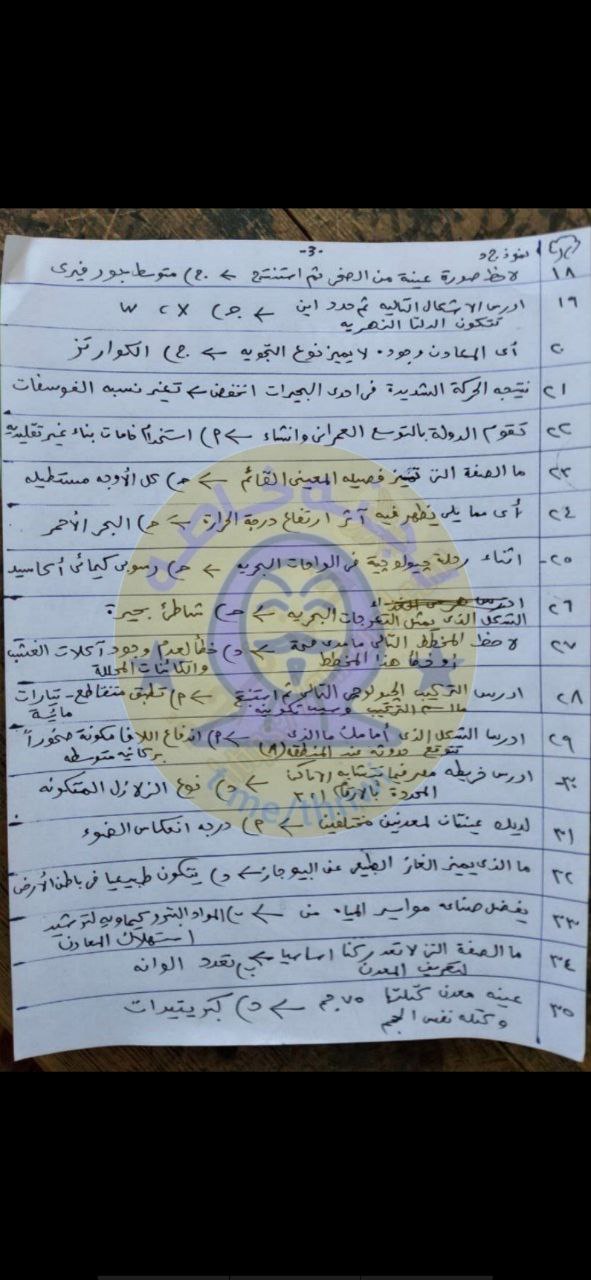 -3-
نموذج د
١٨ لاحظ صورة عينة من الصخر ثم استنتج ← ج) متوسط جوفيرى
١٩ ادرس الاشكال التاليه ثم حدد اين ← ج) X ، W
تتكون الدلتا النهريه
٢٠ أى المعادن وجوده لا يميز نوع التجويه ← ج) الكوارتز
٢١ نتيجه الحركة الشديدة فى احدى البحيرات انخفض ← تغير نسبه الفوسفات
٢٢ تقوم الدولة بالتوسع العمرانى وانشاء ← م) استخدام خامات بناء غير تقليديه
٢٣ ما الصفة التى تميز فصيله المعينى القائم ← ج) كل الأوجه مستطيله
٢٤ أى مما يلى تظهر فيه آثر ارتفاع درجة الحرارة ← ج) البحر الأحمر
٢٥- اثناء رحلة جيولوجية فى الواحات البحريه ← ج) رسوبى كيمائى أكاسيد
٢٦
الشكل الذى يمثل التعرجات البحريه ← ج) شاطئ بحيرة
٢٧ لاحظ المخطط التالى ما مدى صحة ← د) خطأ لعدم وجود آكلات العشب
أو خطأ هذا المخطط والكائنات المحللة
٢٨ ادرس التركيب الجيولوجى التالى ثم استنتج ← م) تطبق متقاطع - تيارات
ما اسم التركيب وسبب تكوينه مائية
٢٩ ادرس الشكل الذى أمامك ما الذى ← م) اندفاع اللافا مكونة صخوراً
تتوقع حدوثه عند المنطقه (A) بركانيه متوسطه
٣٠- ادرس خريطه مصر فيما تتشابه الأماكن ← د) نوع الزلازل المتكونه
المحددة بالأرقام ١ ، ٢
٣١ لديك عينتان لمعدنين مختلفين ← م) درجه انعكاس الضوء
٣٢ ما الذى يميز الغاز الطبيعى عن البيوجاز ← د) يتكون طبيعيا فى باطن الأرض
٣٣ يفضل صناعه مواسير المياه من ← ب) المواد البتروكيماويه لترشيد
استهلاك المعادن
٣٤ ما الصفة التى لا تعد ركنا اساسيا ← ب) تعدد الوانه
لتعريف المعدن
٣٥ عينه معدن كتلتها ٧٥ جم ← د) كبريتيدات
وكتله نفس الحجم
t.me/